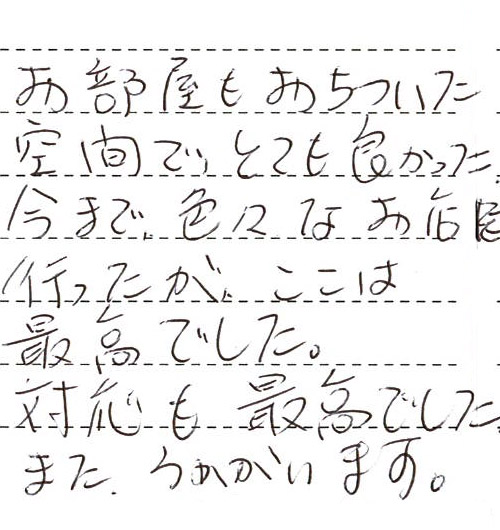 お部屋もおちついた
空間で、とても良かった
今まで、色々なお店
行ったが、ここは
最高でした。
対応も最高でした
また、うかがいます。